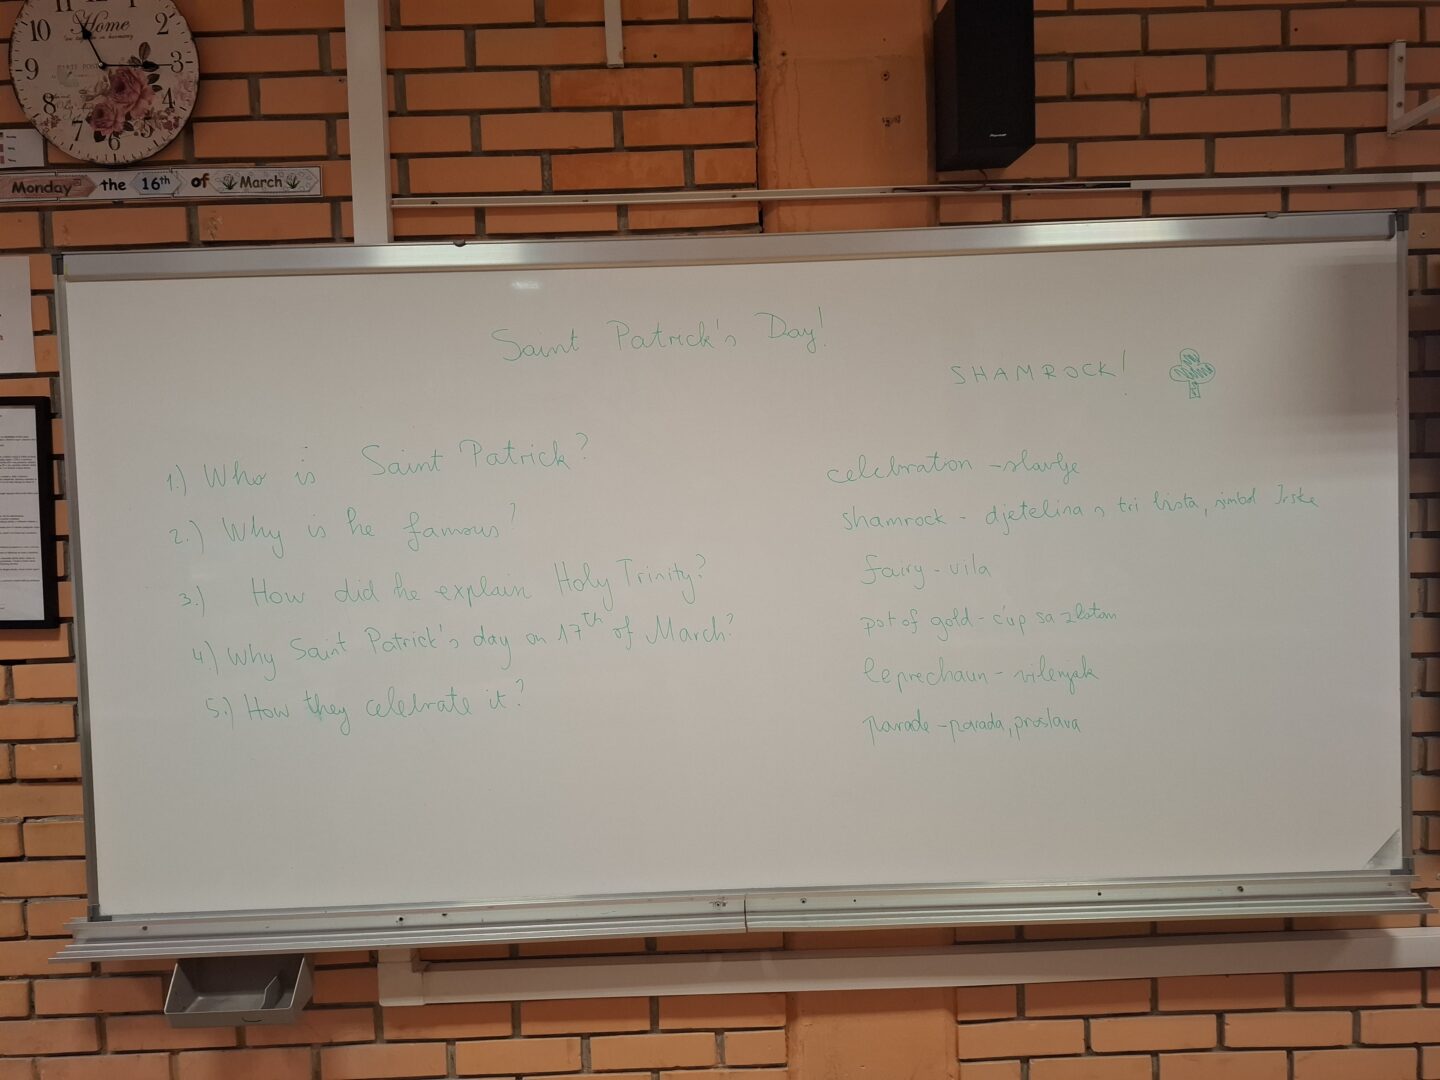 11 12 1
10 Home 2
9 3
8 4
7 6 5
Monday the 16th of March
Pioneer
Saint Patrick's Day!
SHAMROCK!
1.) Who is Saint Patrick?
2.) Why is he famous?
3.) How did he explain Holy Trinity?
4.) Why Saint Patrick's day on 17th of March?
5.) How they celebrate it?
celebration - slavlje
shamrock - djetelina s tri lista, simbol Irske
fairy - vila
pot of gold - ćup sa zlatom
leprechaun - vilenjak
parade - parada, proslava